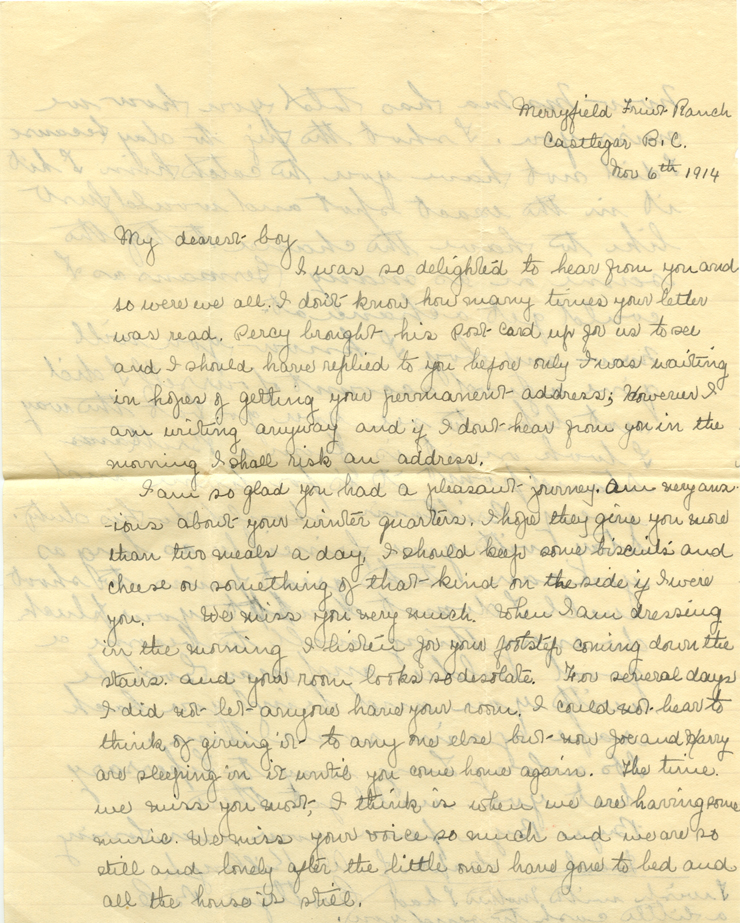 Merryfield Fruit Ranch
Castlegar B.C.
Nov 6th 1914
My dearest boy
I was so delighted to hear from you and
so were we all. I don't know how many times your letter
was read. Percy brought his Post Card up for us to see
and I should have replied to you before only I was waiting
in hopes of getting your permanent address; However I
am writing anyway and if I don't hear from you in the
morning I shall risk an address.
I am so glad you had a pleasant journey. Am very anx-
-ious about your winter quarters. I hope they give you more
than two meals a day. I should keep some biscuits and
cheese or something of that kind on the side if I were
you. We miss you very much. When I am dressing
in the morning I listen for your footstep coming down the
stairs. and your room looks so disolate. For several days
I did not let anyone have your room. I could not bear to
think of giving it to any one else but now Joe and Harry
are sleeping in it until you come home again. The time
we miss you most, I think is when we are having some
music. We miss your voice so much and we are so
still and lonely after the little ones have gone to bed and
all the house is still.